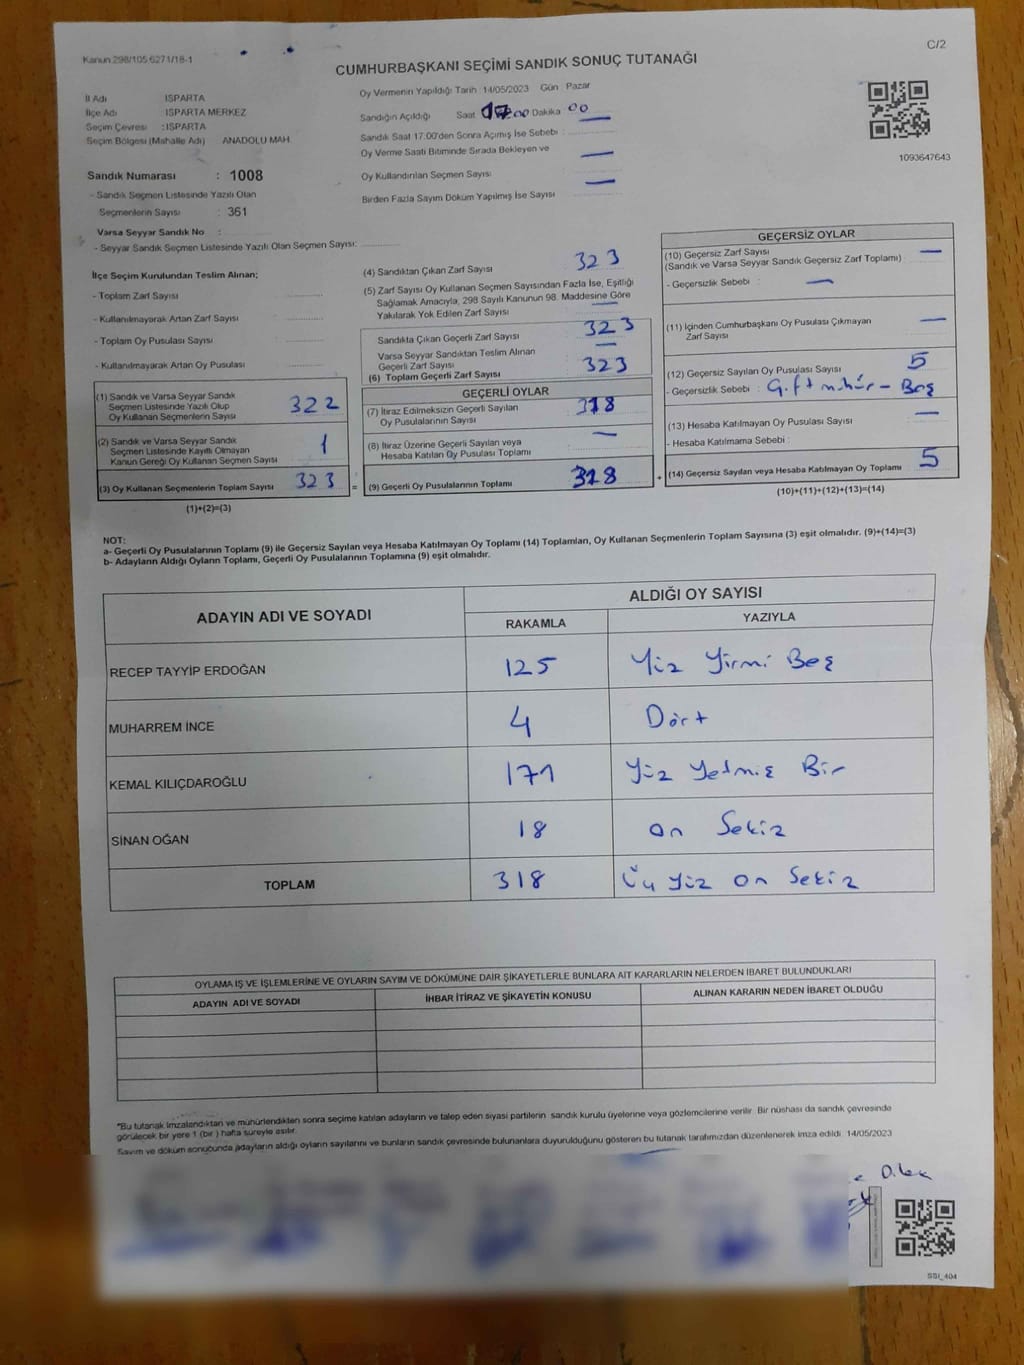 Kanun 298/105 6271/18-1
C/2
CUMHURBAŞKANI SEÇİMİ SANDIK SONUÇ TUTANAĞI
İl Adı ISPARTA
İlçe Adı ISPARTA MERKEZ
Seçim Çevresi : ISPARTA
Seçim Bölgesi (Mahalle Adı) ANADOLU MAH.
Sandık Numarası : 1008
- Sandık Seçmen Listesinde Yazılı Olan
Seçmenlerin Sayısı : 361
Varsa Seyyar Sandık No :
- Seyyar Sandık Seçmen Listesinde Yazılı Olan Seçmen Sayısı:
Oy Vermenin Yapıldığı Tarih 14/05/2023 Gün Pazar
Sandığın Açıldığı Saat 17:00 Dakika 00
Sandık Saat 17:00'den Sonra Açımış İse Sebebi : —
Oy Verme Saati Bitiminde Sırada Bekleyen ve
Oy Kullandırılan Seçmen Sayısı —
Birden Fazla Sayım Döküm Yapılmış İse Sayısı —
1093647643
İlçe Seçim Kurulundan Teslim Alınan;
- Toplam Zarf Sayısı
- Kullanılmayarak Artan Zarf Sayısı
- Toplam Oy Pusulası Sayısı
- Kullanılmayarak Artan Oy Pusulası
(1) Sandık ve Varsa Seyyar Sandık
Seçmen Listesinde Yazılı Olup
Oy Kullanan Seçmenlerin Sayısı 322
(2) Sandık ve Varsa Seyyar Sandık
Seçmen Listesinde Kayıtlı Olmayan
Kanun Gereği Oy Kullanan Seçmen Sayısı 1
(3) Oy Kullanan Seçmenlerin Toplam Sayısı 323
(1)+(2)=(3)
(4) Sandıktan Çıkan Zarf Sayısı 323
(5) Zarf Sayısı Oy Kullanan Seçmen Sayısından Fazla İse, Eşitliği
Sağlamak Amacıyla, 298 Sayılı Kanunun 98. Maddesine Göre
Yakılarak Yok Edilen Zarf Sayısı —
Sandıkta Çıkan Geçerli Zarf Sayısı 323
Varsa Seyyar Sandıktan Teslim Alınan
Geçerli Zarf Sayısı —
(6) Toplam Geçerli Zarf Sayısı 323
GEÇERLİ OYLAR
(7) İtiraz Edilmeksizin Geçerli Sayılan
Oy Pusulalarının Sayısı 318
(8) İtiraz Üzerine Geçerli Sayılan veya
Hesaba Katılan Oy Pusulası Toplamı —
= (9) Geçerli Oy Pusulalarının Toplamı 318 +
GEÇERSİZ OYLAR
(10) Geçersiz Zarf Sayısı —
(Sandık ve Varsa Seyyar Sandık Geçersiz Zarf Toplamı)
- Geçersizlik Sebebi : —
(11) İçinden Cumhurbaşkanı Oy Pusulası Çıkmayan
Zarf Sayısı —
(12) Geçersiz Sayılan Oy Pusulası Sayısı 5
- Geçersizlik Sebebi : Çift mühür - Boş
(13) Hesaba Katılmayan Oy Pusulası Sayısı —
- Hesaba Katılmama Sebebi :
(14) Geçersiz Sayılan veya Hesaba Katılmayan Oy Toplamı 5
(10)+(11)+(12)+(13)=(14)
NOT:
a- Geçerli Oy Pusulalarının Toplamı (9) ile Geçersiz Sayılan veya Hesaba Katılmayan Oy Toplamı (14) Toplamları, Oy Kullanan Seçmenlerin Toplam Sayısına (3) eşit olmalıdır. (9)+(14)=(3)
b- Adayların Aldığı Oyların Toplamı, Geçerli Oy Pusulalarının Toplamına (9) eşit olmalıdır.
ADAYIN ADI VE SOYADI ALDIĞI OY SAYISI
RAKAMLA YAZIYLA
RECEP TAYYİP ERDOĞAN 125 Yüz Yirmi Beş
MUHARREM İNCE 4 Dört
KEMAL KILIÇDAROĞLU 171 Yüz Yetmiş Bir
SİNAN OĞAN 18 on Sekiz
TOPLAM 318 Üç Yüz on Sekiz
OYLAMA İŞ VE İŞLEMLERİNE VE OYLARIN SAYIM VE DÖKÜMÜNE DAİR ŞİKAYETLERLE BUNLARA AİT KARARLARIN NELERDEN İBARET BULUNDUKLARI
ADAYIN ADI VE SOYADI İHBAR İTİRAZ VE ŞİKAYETİN KONUSU ALINAN KARARIN NEDEN İBARET OLDUĞU
*Bu tutanak imzalandıktan ve mühürlendikten sonra seçime katılan adayların ve talep eden siyasi partilerin sandık kurulu üyelerine veya gözlemcilerine verilir. Bir nüshası da sandık çevresinde
görülecek bir yere 1 (bir) hafta süreyle asılır.
Sayım ve döküm sonucunda adayların aldığı oyların sayılarını ve bunların sandık çevresinde bulunanlara duyurulduğunu gösteren bu tutanak tarafımızdan düzenlenerek imza edildi. 14/05/2023
SSI_404